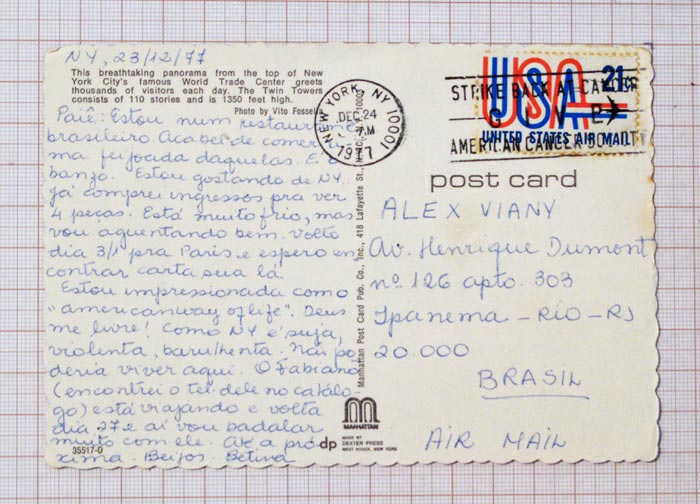 NY, 23/12/77
This breathtaking panorama from the top of New
York City's famous World Trade Center greets
thousands of visitors each day. The Twin Towers
consists of 110 stories and is 1350 feet high.
Photo by Vito Fossella
Paiê: Estou num restaurante
brasileiro. Acabei de comer u-
ma feijoada daquelas. E o
banzo. Estou gostando de NY.
Já comprei ingressos pra ver
4 peças. Está muito frio, mas
vou aguentando bem. Volto
dia 3/1 pra Paris e espero en
contrar carta sua lá.
Estou impressionada como
"american way of life". Deus
me livre! Como NY é suja,
violenta, barulhenta. Não po
deria viver aqui. O Fabiano
(encontrei o tel. dele no catálo-
go) está viajando e volta
dia 27 e aí vou badalar
muito com ele. Até a pró-
xima. Beijos. Betina
35517-D
Manhattan Post Card Pub. Co., Inc., 418 Lafayette St., N.Y.C. 10003
MANHATTAN
dp
MADE BY
DEXTER PRESS
WEST NYACK, NEW YORK
NEW YORK, NY 10001
DEC 24
PM
1977
STRIKE BACK AT CANCER
GIVE
AMERICAN CANCER SOCIETY
USA 21¢
UNITED STATES AIR MAIL
post card
ALEX VIANY
Av. Henrique Dumont
nº 126 apto. 303
Ipanema - RIO - RJ
20.000
BRASIL
AIR MAIL